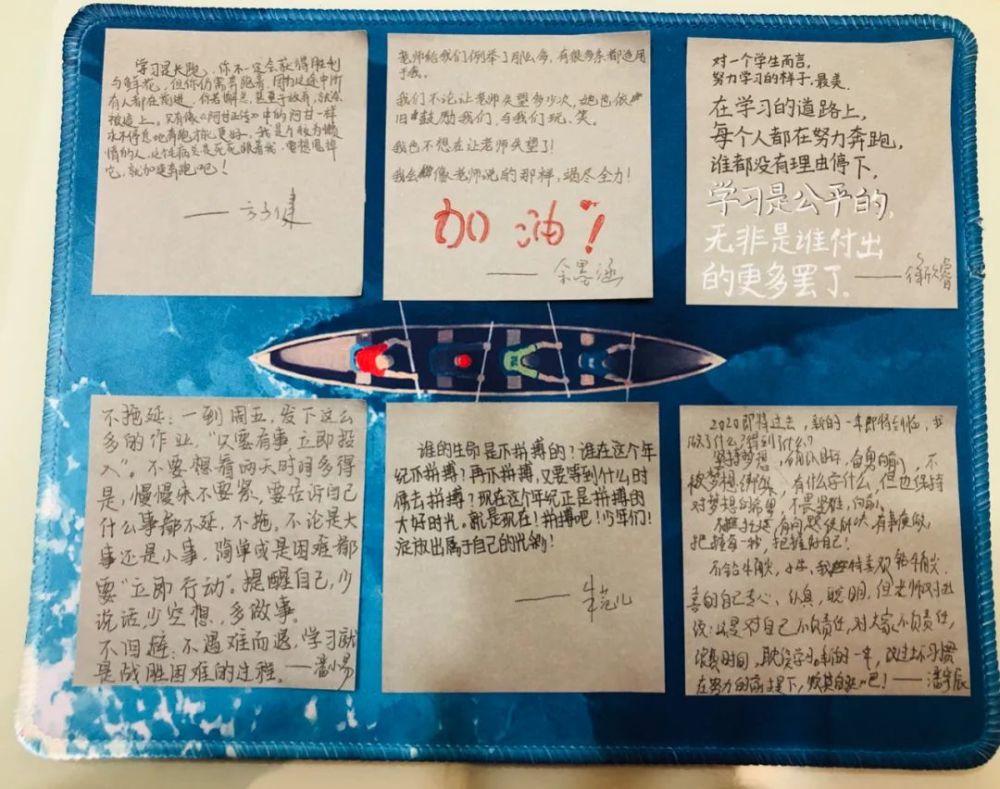 学习是长跑，你不一定会获得胜利
与鲜花，但你仍需奔跑着，因为这途中所
有人都在前进，你若懈怠，甚至于放弃，就会
被追上。只有像《阿甘正传》中的阿甘一样
永不停息地奔跑才能更好。我是个较为懒
惰的人，这件病总是死死跟着我，要想甩掉
它，就加速奔跑吧！
——方子健
老师给我们例举了那么多，有很多条都适用
于我。
我们不论让老师失望多少次，她也依
旧鼓励我们，与我们玩、笑。
我也不想在让老师失望了！
我会像老师说的那样，竭尽全力！
加油！
——余墨涵
对一个学生而言，
努力学习的样子，最美.
在学习的道路上，
每个人都在努力奔跑，
谁都没有理由停下，
学习是公平的，
无非是谁付出
的更多罢了.
——徐欣睿
不拖延：一到周五，发下这么
多的作业，“只要有事，立即投
入”。不要想着两天时间多得
是，慢慢来不要紧，要告诉自己
什么事都不延，不拖。不论是大
事还是小事，简单或是困难都
要“立即行动”。提醒自己，少
说话，少空想，多做事。
不回避：不遇难而退，学习就
是战胜困难的过程。——潘小易
谁的生命是不拼搏的？谁在这个年
纪不拼搏？再不拼搏，又要等到什么时
候去拼搏？现在这个年纪正是拼搏的
大好时光。就是现在！拼搏吧！少年们！
绽放出属于自己的光彩！
——朱芑儿
2020即将过去，新的一年即将到临，我
做了什么？得到了什么？
坚持梦想，确认目标，奋勇前行，不
被梦想绑架，有什么学什么，但也保持
对梦想的希望，不畏坚难，向前。
不拖延，有问题便解决，有事便做，
把握每一秒，把握好自己！
不给牛角尖，小学，我特喜欢钻牛角尖，
喜的自己专心、认真，聪明，但老师对我
说：这是对自己不负责任，对大家不负责任，
浪费时间，耽误学习。新的一年，改过坏习惯
在努力的前提下，放其自然吧！——潘宇辰